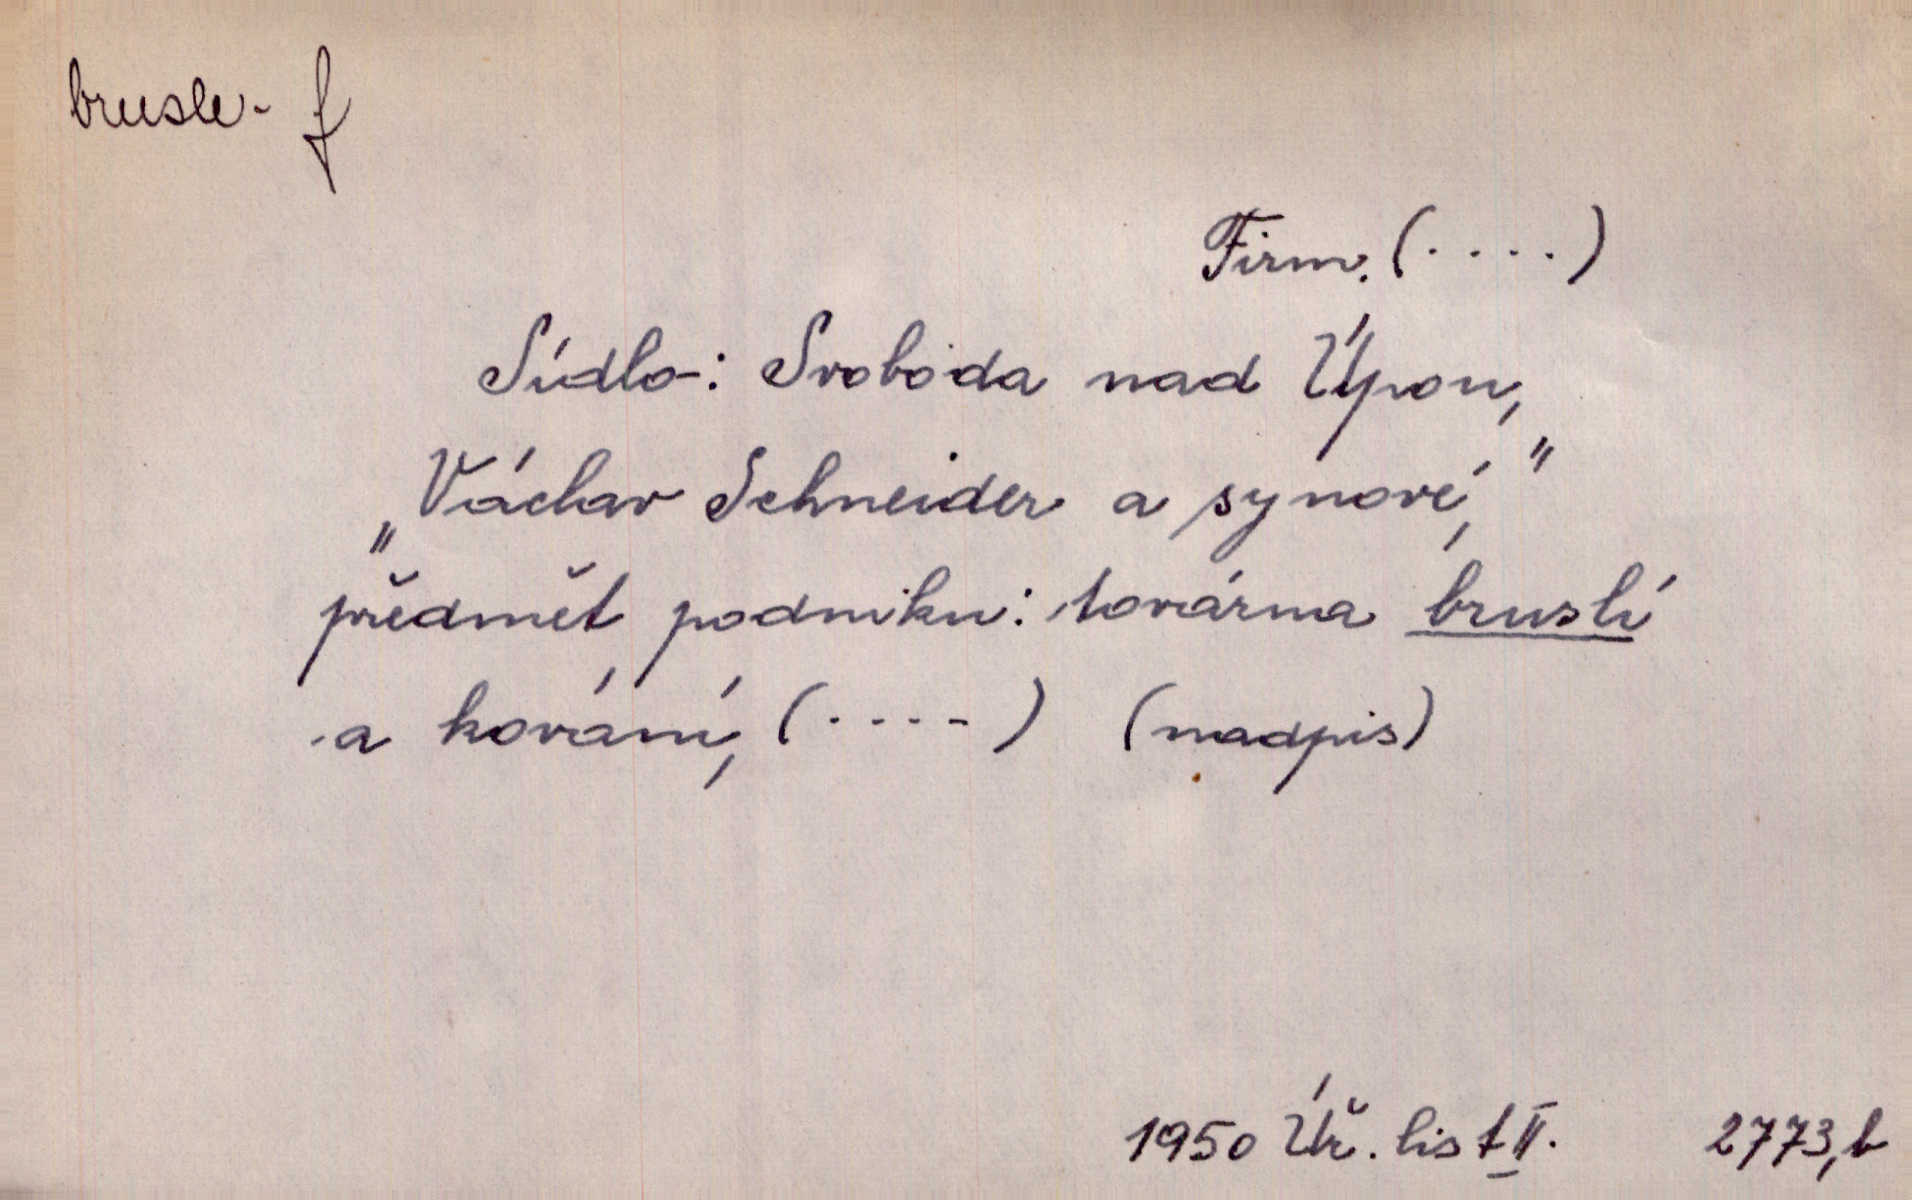 brusle - f
Firm. (....)
Sídlo: Svoboda nad Úpou,
„Václav Schneider a synové,"
předmět podniku: továrna bruslí
a kování, (....) (nadpis)
1950 Úř. list II. 2773, b